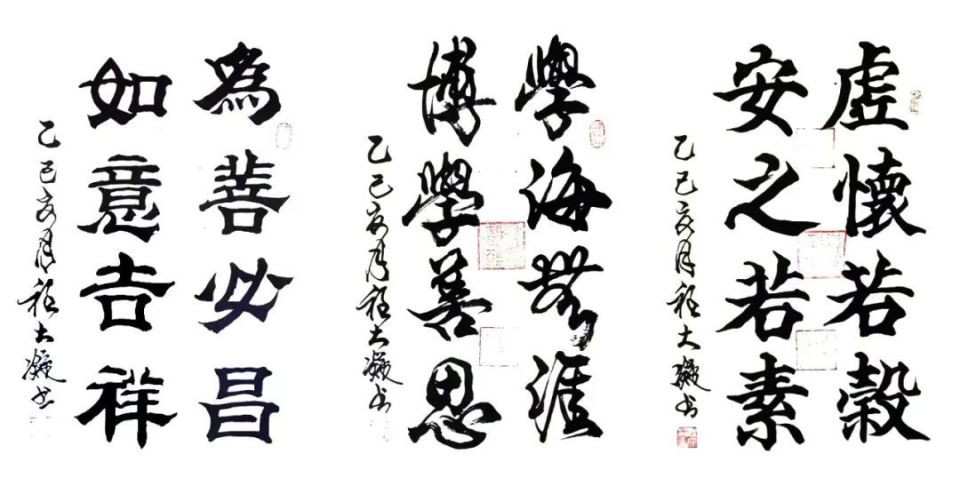 虛懷若穀
安之若素
乙巳亥月程大凝书
學海無涯
博學善思
乙巳亥月程大凝书
為善必昌
如意吉祥
乙巳亥月程大凝书